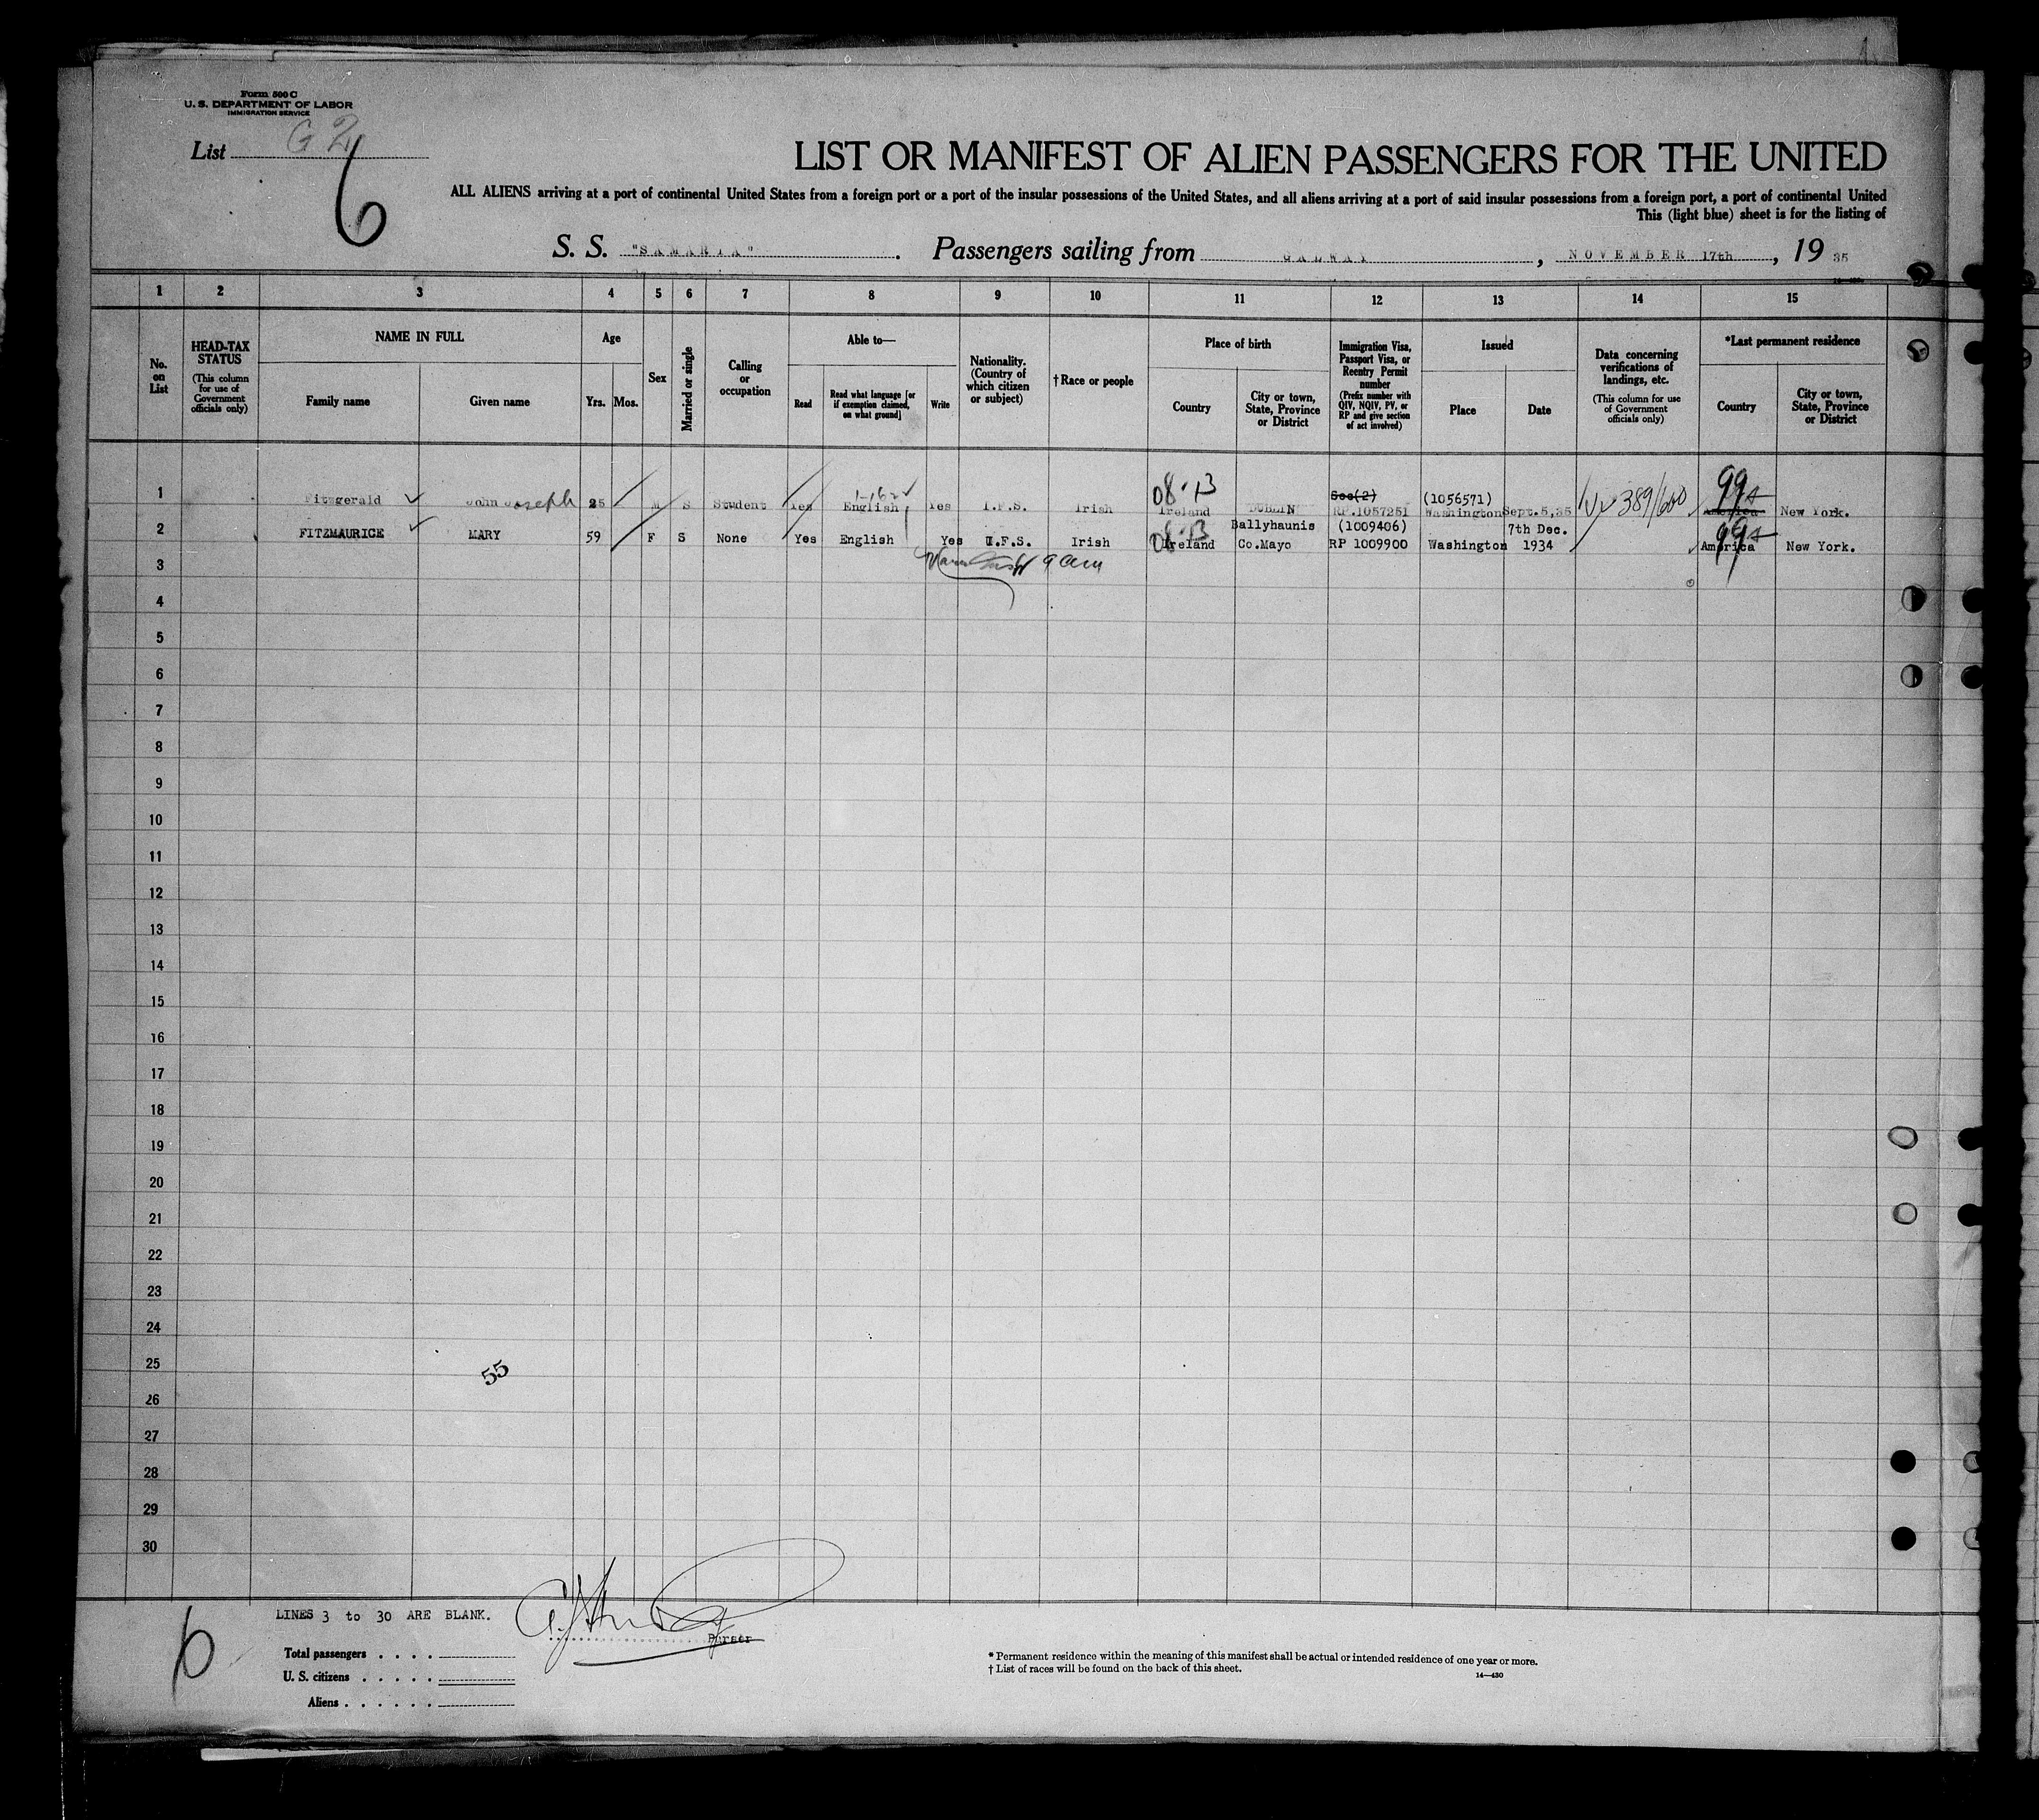 Form 500 C
U. S. DEPARTMENT OF LABOR
IMMIGRATION SERVICE
List G 2
6
LIST OR MANIFEST OF ALIEN PASSENGERS FOR THE UNITED
ALL ALIENS arriving at a port of continental United States from a foreign port or a port of the insular possessions of the United States, and all aliens arriving at a port of said insular possessions from a foreign port, a port of continental United
This (light blue) sheet is for the listing of
S. S. "SAMARIA". Passengers sailing from GALWAY, NOVEMBER 17th, 19 35
1 2 3 4 5 6 7 8 9 10 11 12 13 14 15
No. on List
HEAD-TAX STATUS (This column for use of Government officials only)
NAME IN FULL
Family name
Given name
Age
Yrs. Mos.
Sex
Married or single
Calling or occupation
Able to—
Read
Read what language [or if exemption claimed, on what ground]
Write
Nationality. (Country of which citizen or subject)
† Race or people
Place of birth
Country
City or town, State, Province or District
Immigration Visa, Passport Visa, or Reentry Permit number (Prefix number with QIV, NQIV, PV, or RP and give section of act involved)
Issued
Place
Date
Data concerning verifications of landings, etc. (This column for use of Government officials only)
*Last permanent residence
Country
City or town, State, Province or District
08-13 Sec(2) (1056571) 99
1 Fitzgerald John Joseph 25 M S Student Yes English Yes I.F.S. Irish Ireland DUBLIN RP.1057251 Washington Sept.5,35 389/600 America New York.
08-13 Ballyhaunis (1009406) 7th Dec. 99
2 FITZMAURICE MARY 59 F S None Yes English Yes I.F.S. Irish Ireland Co.Mayo RP 1009900 Washington 1934 America New York.
3 9 am
4
5
6
7
8
9
10
11
12
13
14
15
16
17
18
19
20
21
22
23
24
25
55
26
27
28
29
30
LINES 3 to 30 ARE BLANK.
Purser
6
Total passengers . . . .
U. S. citizens . . . . .
Aliens . . . . . .
* Permanent residence within the meaning of this manifest shall be actual or intended residence of one year or more.
† List of races will be found on the back of this sheet.
14—430